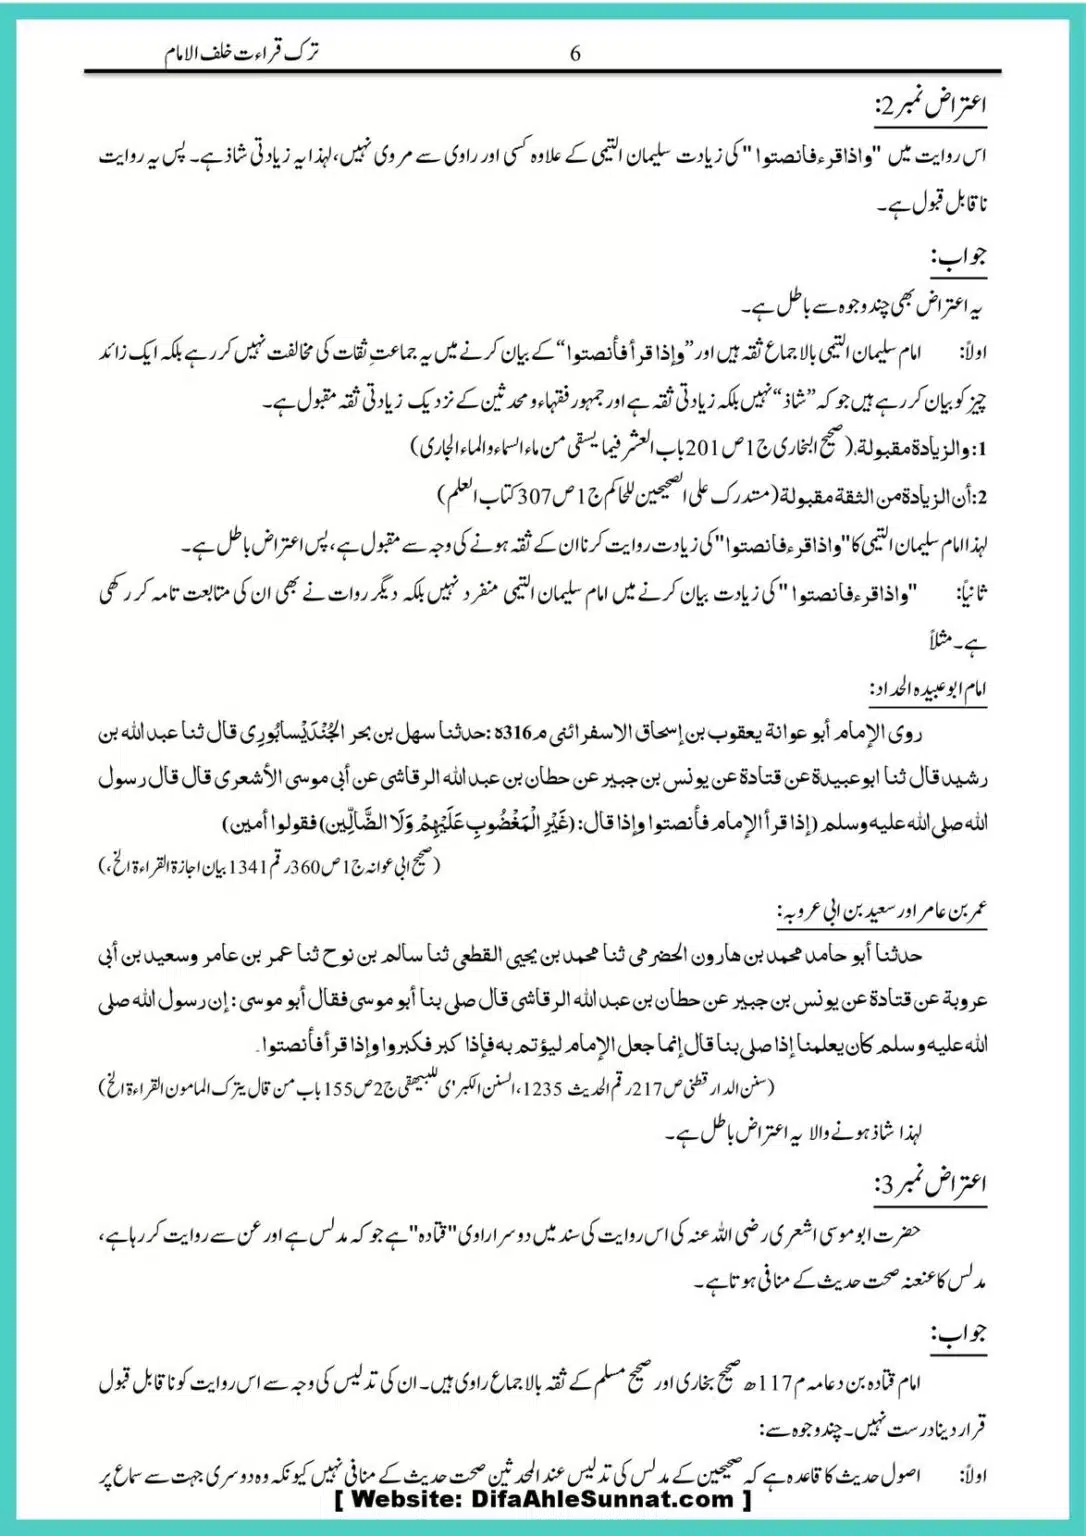 ترک قراءت خلف الامام
6
اعتراض نمبر 2:
اس روایت میں "واذا قرء فانصتوا" کی زیادت سلیمان التیمی کے علاوہ کسی اور راوی سے مروی نہیں، لہذا یہ زیادتی شاذ ہے۔ پس یہ روایت
نا قابل قبول ہے۔
جواب:
یہ اعتراض بھی چند وجوہ سے باطل ہے۔
اولاً: امام سلیمان التیمی بالاجماع ثقہ ہیں اور ”وإذا قرأ فأنصتوا“ کے بیان کرنے میں یہ جماعتِ ثقات کی مخالفت نہیں کر رہے بلکہ ایک زائد
چیز کو بیان کر رہے ہیں جو کہ ”شاذ“ نہیں بلکہ زیادتی ثقہ ہے اور جمہور فقہاء و محدثین کے نزدیک زیادتی ثقہ مقبول ہے۔
1: والزيادة مقبولة، (صحیح البخاری ج1 ص201 باب العشر فیما یسقی من ماء السماء والماء الجاری)
2: أن الزيادة من الثقة مقبولة (مستدرک علی الصحیحین للحاکم ج1 ص307 کتاب العلم)
لہذا امام سلیمان التیمی کا "واذا قرء فانصتوا" کی زیادت روایت کرنا ان کے ثقہ ہونے کی وجہ سے مقبول ہے، پس اعتراض باطل ہے۔
ثانیاً: "واذا قرء فانصتوا" کی زیادت بیان کرنے میں امام سلیمان التیمی منفرد نہیں بلکہ دیگر روات نے بھی ان کی متابعت تامہ کر رکھی
ہے۔ مثلاً
امام ابو عبیدہ الحداد:
روى الإمام أبو عوانة يعقوب بن إسحاق الاسفرائنی م316ه: حدثنا سهل بن بحر الجُنْدَيْسابُورِی قال ثنا عبد الله بن
رشيد قال ثنا ابو عبيدة عن قتادة عن يونس بن جبير عن حطان بن عبد الله الرقاشی عن أبی موسى الأشعری قال قال رسول
الله صلى الله عليه وسلم (إذا قرأ الإمام فأنصتوا وإذا قال: (غَيْرِ الْمَغْضُوبِ عَلَيْهِمْ وَلَا الضَّالِّين) فقولوا أمين)
(صحیح ابی عوانہ ج1 ص360 رقم 1341 بیان اجازۃ القراءۃ الخ،)
عمر بن عامر اور سعید بن ابی عروبہ:
حدثنا أبو حامد محمد بن هارون الحضرمی ثنا محمد بن يحيى القطعی ثنا سالم بن نوح ثنا عمر بن عامر وسعيد بن أبی
عروبة عن قتادة عن يونس بن جبير عن حطان بن عبد الله الرقاشی قال صلى بنا أبو موسى فقال أبو موسى: إن رسول الله صلى
الله عليه وسلم كان يعلمنا إذا صلى بنا قال إنما جعل الإمام ليؤتم به فإذا كبر فكبروا وإذا قرأ فأنصتوا۔
(سنن الدار قطنی ص217 رقم الحدیث 1235، السنن الکبریٰ للبیہقی ج2 ص155 باب من قال یترک المامون القراءۃ الخ)
لہذا شاذ ہونے والا یہ اعتراض باطل ہے۔
اعتراض نمبر 3:
حضرت ابو موسی اشعری رضی اللہ عنہ کی اس روایت کی سند میں دوسرا راوی "قتادہ" ہے جو کہ مدلس ہے اور عن سے روایت کر رہا ہے،
مدلس کا عنعنہ صحت حدیث کے منافی ہوتا ہے۔
جواب:
امام قتادہ بن دعامہ م117ھ صحیح بخاری اور صحیح مسلم کے ثقہ بالاجماع راوی ہیں۔ ان کی تدلیس کی وجہ سے اس روایت کو نا قابل قبول
قرار دینا درست نہیں۔ چند وجوہ سے:
اولاً: اصول حدیث کا قاعدہ ہے کہ صحیحین کے مدلس کی تدلیس عند المحدثین صحت حدیث کے منافی نہیں کیونکہ وہ دوسری جہت سے سماع پر
[ Website: DifaAhleSunnat.com ]